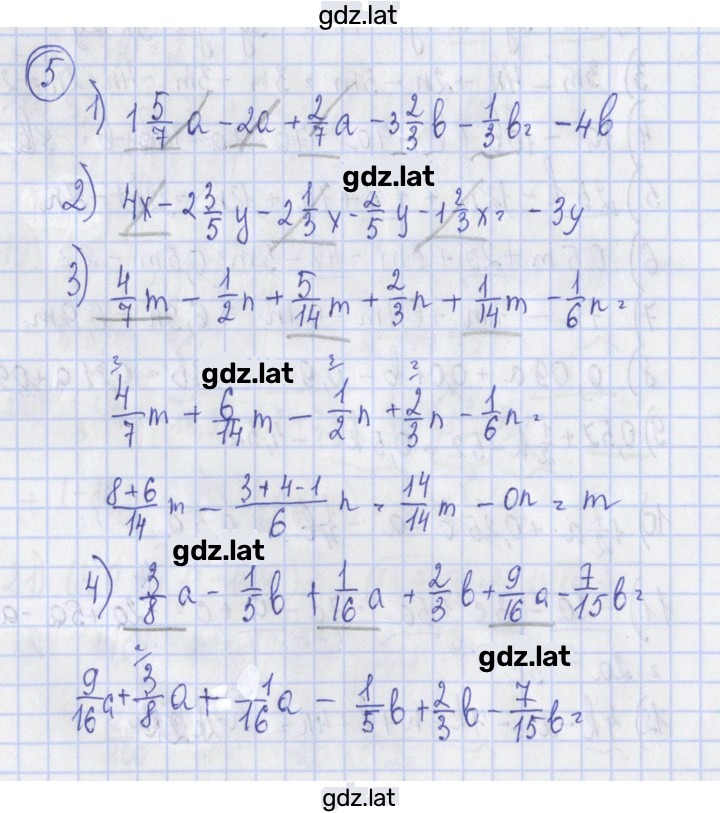 gdz.lat
5
1) 1 5/7 a - 2a + 2/7 a - 3 2/3 b - 1/3 b = - 4b
gdz.lat
2) 4x - 2 3/5 y - 2 1/3 x - 2/5 y - 1 2/3 x = - 3y
3) 4/7 m - 1/2 n + 5/14 m + 2/3 n + 1/14 m - 1/6 n =
gdz.lat
4/7 m + 6/14 m - 1/2 n + 2/3 n - 1/6 n =
(8+6)/14 m - (3+4-1)/6 n = 14/14 m - 0n = m
gdz.lat
4) 3/8 a - 1/5 b + 1/16 a + 2/3 b + 9/16 a - 7/15 b =
gdz.lat
9/16 a + 3/8 a + 1/16 a - 1/5 b + 2/3 b - 7/15 b =
gdz.lat